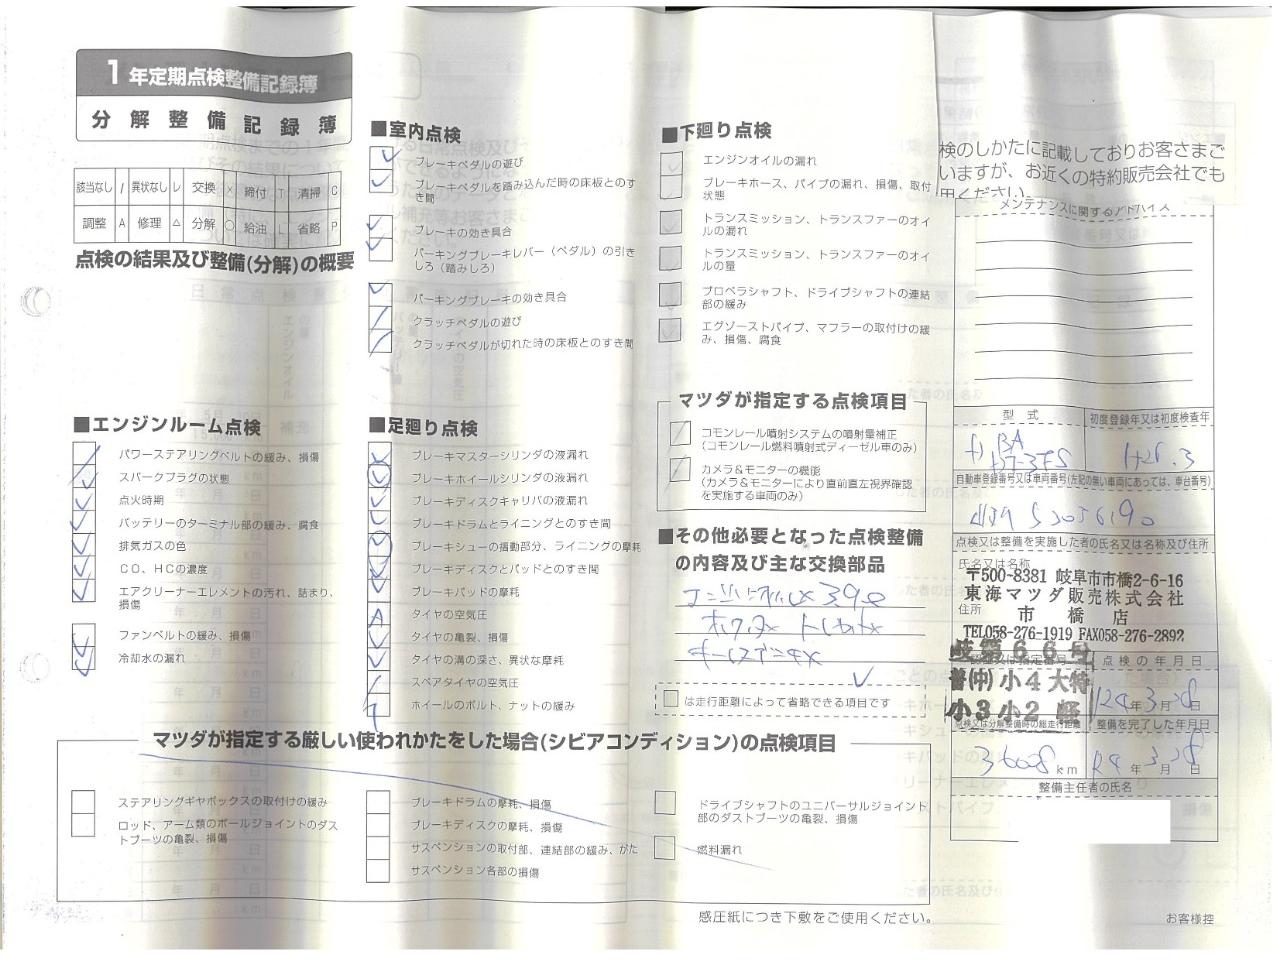 1年定期点検整備記録簿
分解整備記録簿
該当なし / 異状なし レ 交換 × 締付 T 清掃 C
調整 A 修理 △ 分解 ○ 給油 L 省略 P
点検の結果及び整備(分解)の概要
■エンジンルーム点検
パワーステアリングベルトの緩み、損傷
スパークプラグの状態
点火時期
バッテリーのターミナル部の緩み、腐食
排気ガスの色
CO、HCの濃度
エアクリーナーエレメントの汚れ、詰まり、
損傷
ファンベルトの緩み、損傷
冷却水の漏れ
■室内点検
ブレーキペダルの遊び
ブレーキペダルを踏み込んだ時の床板とのす
き間
ブレーキの効き具合
パーキングブレーキレバー（ペダル）の引き
しろ（踏みしろ）
パーキングブレーキの効き具合
クラッチペダルの遊び
クラッチペダルが切れた時の床板とのすき間
■足廻り点検
ブレーキマスターシリンダの液漏れ
ブレーキホイールシリンダの液漏れ
ブレーキディスクキャリパの液漏れ
ブレーキドラムとライニングとのすき間
ブレーキシューの摺動部分、ライニングの摩耗
ブレーキディスクとパッドとのすき間
ブレーキパッドの摩耗
タイヤの空気圧
タイヤの亀裂、損傷
タイヤの溝の深さ、異状な摩耗
スペアタイヤの空気圧
ホイールのボルト、ナットの緩み
■下廻り点検
エンジンオイルの漏れ
ブレーキホース、パイプの漏れ、損傷、取付
状態
トランスミッション、トランスファーのオイ
ルの漏れ
トランスミッション、トランスファーのオイ
ルの量
プロペラシャフト、ドライブシャフトの連結
部の緩み
エグゾーストパイプ、マフラーの取付けの緩
み、損傷、腐食
マツダが指定する点検項目
コモンレール噴射システムの噴射量補正
(コモンレール燃料噴射式ディーゼル車のみ)
カメラ&モニターの機能
(カメラ&モニターにより直前直左視界確認
を実施する車両のみ)
■その他必要となった点検整備
の内容及び主な交換部品
は走行距離によって省略できる項目です
マツダが指定する厳しい使われかたをした場合(シビアコンディション)の点検項目
ステアリングギヤボックスの取付けの緩み
ロッド、アーム類のボールジョイントのダス
トブーツの亀裂、損傷
ブレーキドラムの摩耗、損傷
ブレーキディスクの摩耗、損傷
サスペンションの取付部、連結部の緩み、がた
サスペンション各部の損傷
ドライブシャフトのユニバーサルジョイント
部のダストブーツの亀裂、損傷
燃料漏れ
感圧紙につき下敷をご使用ください。
検のしかたに記載しておりお客さまご
いますが、お近くの特約販売会社でも
用ください。
メンテナンスに関するアドバイス
型式 初度登録年又は初度検査年
H26.3
自動車登録番号又は車両番号(左記の無い車両にあっては、車台番号)
点検又は整備を実施した者の氏名又は名称及び住所
氏名又は名称
〒500-8381 岐阜市市橋2-6-16
東海マツダ販売株式会社
住所 市橋店
TEL058-276-1919 FAX058-276-2892
岐第66号
点検の年月日
小4 大特
小3 小2 軽
R4年3月28日
点検又は分解整備時の総走行距離 整備を完了した年月日
km R4年3月28日
整備主任者の氏名
お客様控